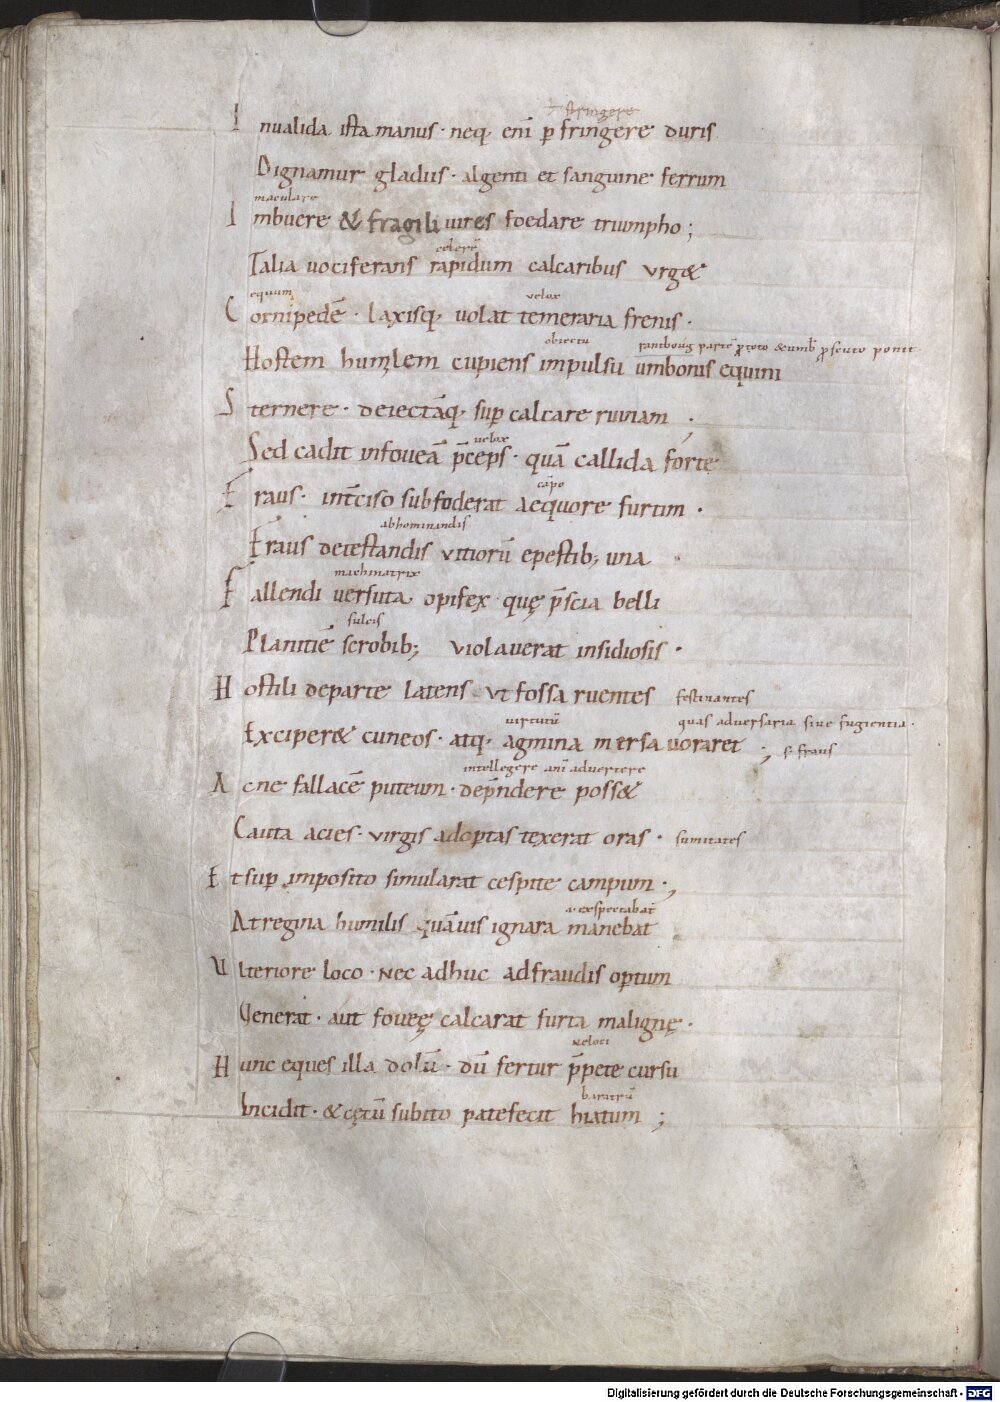 ł stringere
Inualida ista manus · neq; eni̅ p̲fringere duris
Dignamur gladiis · algenti et sanguine ferrum
maculare
Imbuere & fragili uires foedare triumpho ;
celere̅
Talia uociferans rapidum calcaribus urg&
equum velox
Cornipede̅ · laxisq; uolat temeraria frenis ·
obiectu parte̅ p toto & umb̅ p scuto ponit
Hostem humilem cupiens impulsu umbonis equini
Sternere · deiecta̅q; sup̲ calcare ruinam ;
velox
Sed cadit in fouea̅ p̅ceps · qua̅ callida forte
ca̅po
Fraus · int̅ciso subfoderat aequore furtim ·
abhominandis
Fraus detestandis vitioru̅ e pestib; una
machinatrix
Fallendi uersuta opifex · quę p̅scia belli
sulcis
Planitie̅ scrobib; violauerat insidiosis ·
Hostili de parte latens · ut fossa ruentes festinantes
virtutu̅ quas adversaria siue fugientia ·
Exciper& cuneos · atq; agmina mersa uoraret ; s· fraus
intellegere ani̅advertere
Ac ne fallace̅ puteum · dep̅ndere poss&
Cauta acies · virgis adoptas texerat oras · sumitates
Et sup̲ imposito simularat cespite campum ;
ł exspectabat
At regina humilis qua̅uis ignara manebat
Ulteriore loco · nec adhuc ad fraudis optum
Venerat · aut foueę calcarat furta malignę ·
veloci
Hunc eques illa dolu̅ · du̅ fertur p̅pete cursu
baratru̅
Incidit · & cęcu̅ subito patefecit hiatum ;
Digitalisierung gefördert durch die Deutsche Forschungsgemeinschaft · DFG